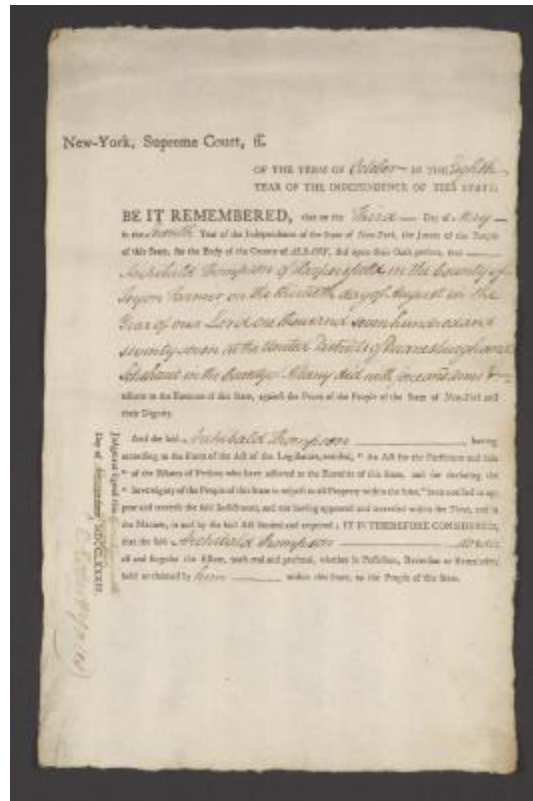 New-York, Supreme Court, ss.
OF THE TERM OF October IN THE Eighth
YEAR OF THE INDEPENDENCE OF THIS STATE.
BE IT REMEMBERED, that on the Third Day of May
in the Year of the Independence of the State of New-York, the Jurors of the People
of this State, for the Body of the County of ALBANY, did upon their Oath present, that
Archibald Thompson of Harpersfield in the County of
Tryon Farmer on the thirtieth day of August in the
Year of our Lord one thousand seven hundred and
seventy seven at the United Districts of Duanesburgh and
Schoharie in the County of Albany did with force and arms &c
adhere to the Enemies of this State, against the Peace of the People of the State of New-York and
their Dignity.
And the said Archibald Thompson having
according to the Form of the Act of the Legislature, entitled, " An Act for the Forfeiture and Sale
" of the Estates of Persons who have adhered to the Enemies of this State, and for declaring the
" Sovereignty of the People of this State in respect to all Property within the same," been notified to ap-
pear and traverse the said Indictment, and not having appeared and traversed within the Time, and in
the Manner, in and by the said Act limited and required; IT IS THEREFORE CONSIDERED,
that the said Archibald Thompson do forfeit
all and singular the Estate, both real and personal, whether in Possession, Reversion or Remainder,
held or claimed by him within this State, to the People of this State.
Judgment Signed this
Day of MDCCLXXXIII.